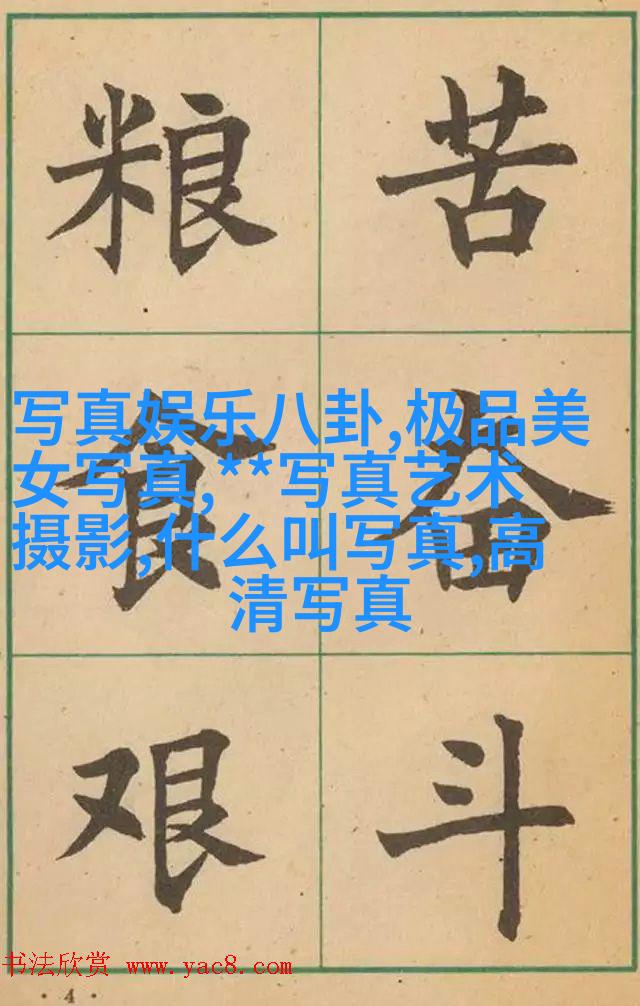 粮食艰
苦奋斗
写真娱乐八卦,极品美
女写真,**写真艺术
摄影,什么叫写真,高
清写真
书法欣赏 www.yac8.com
· 4 ·